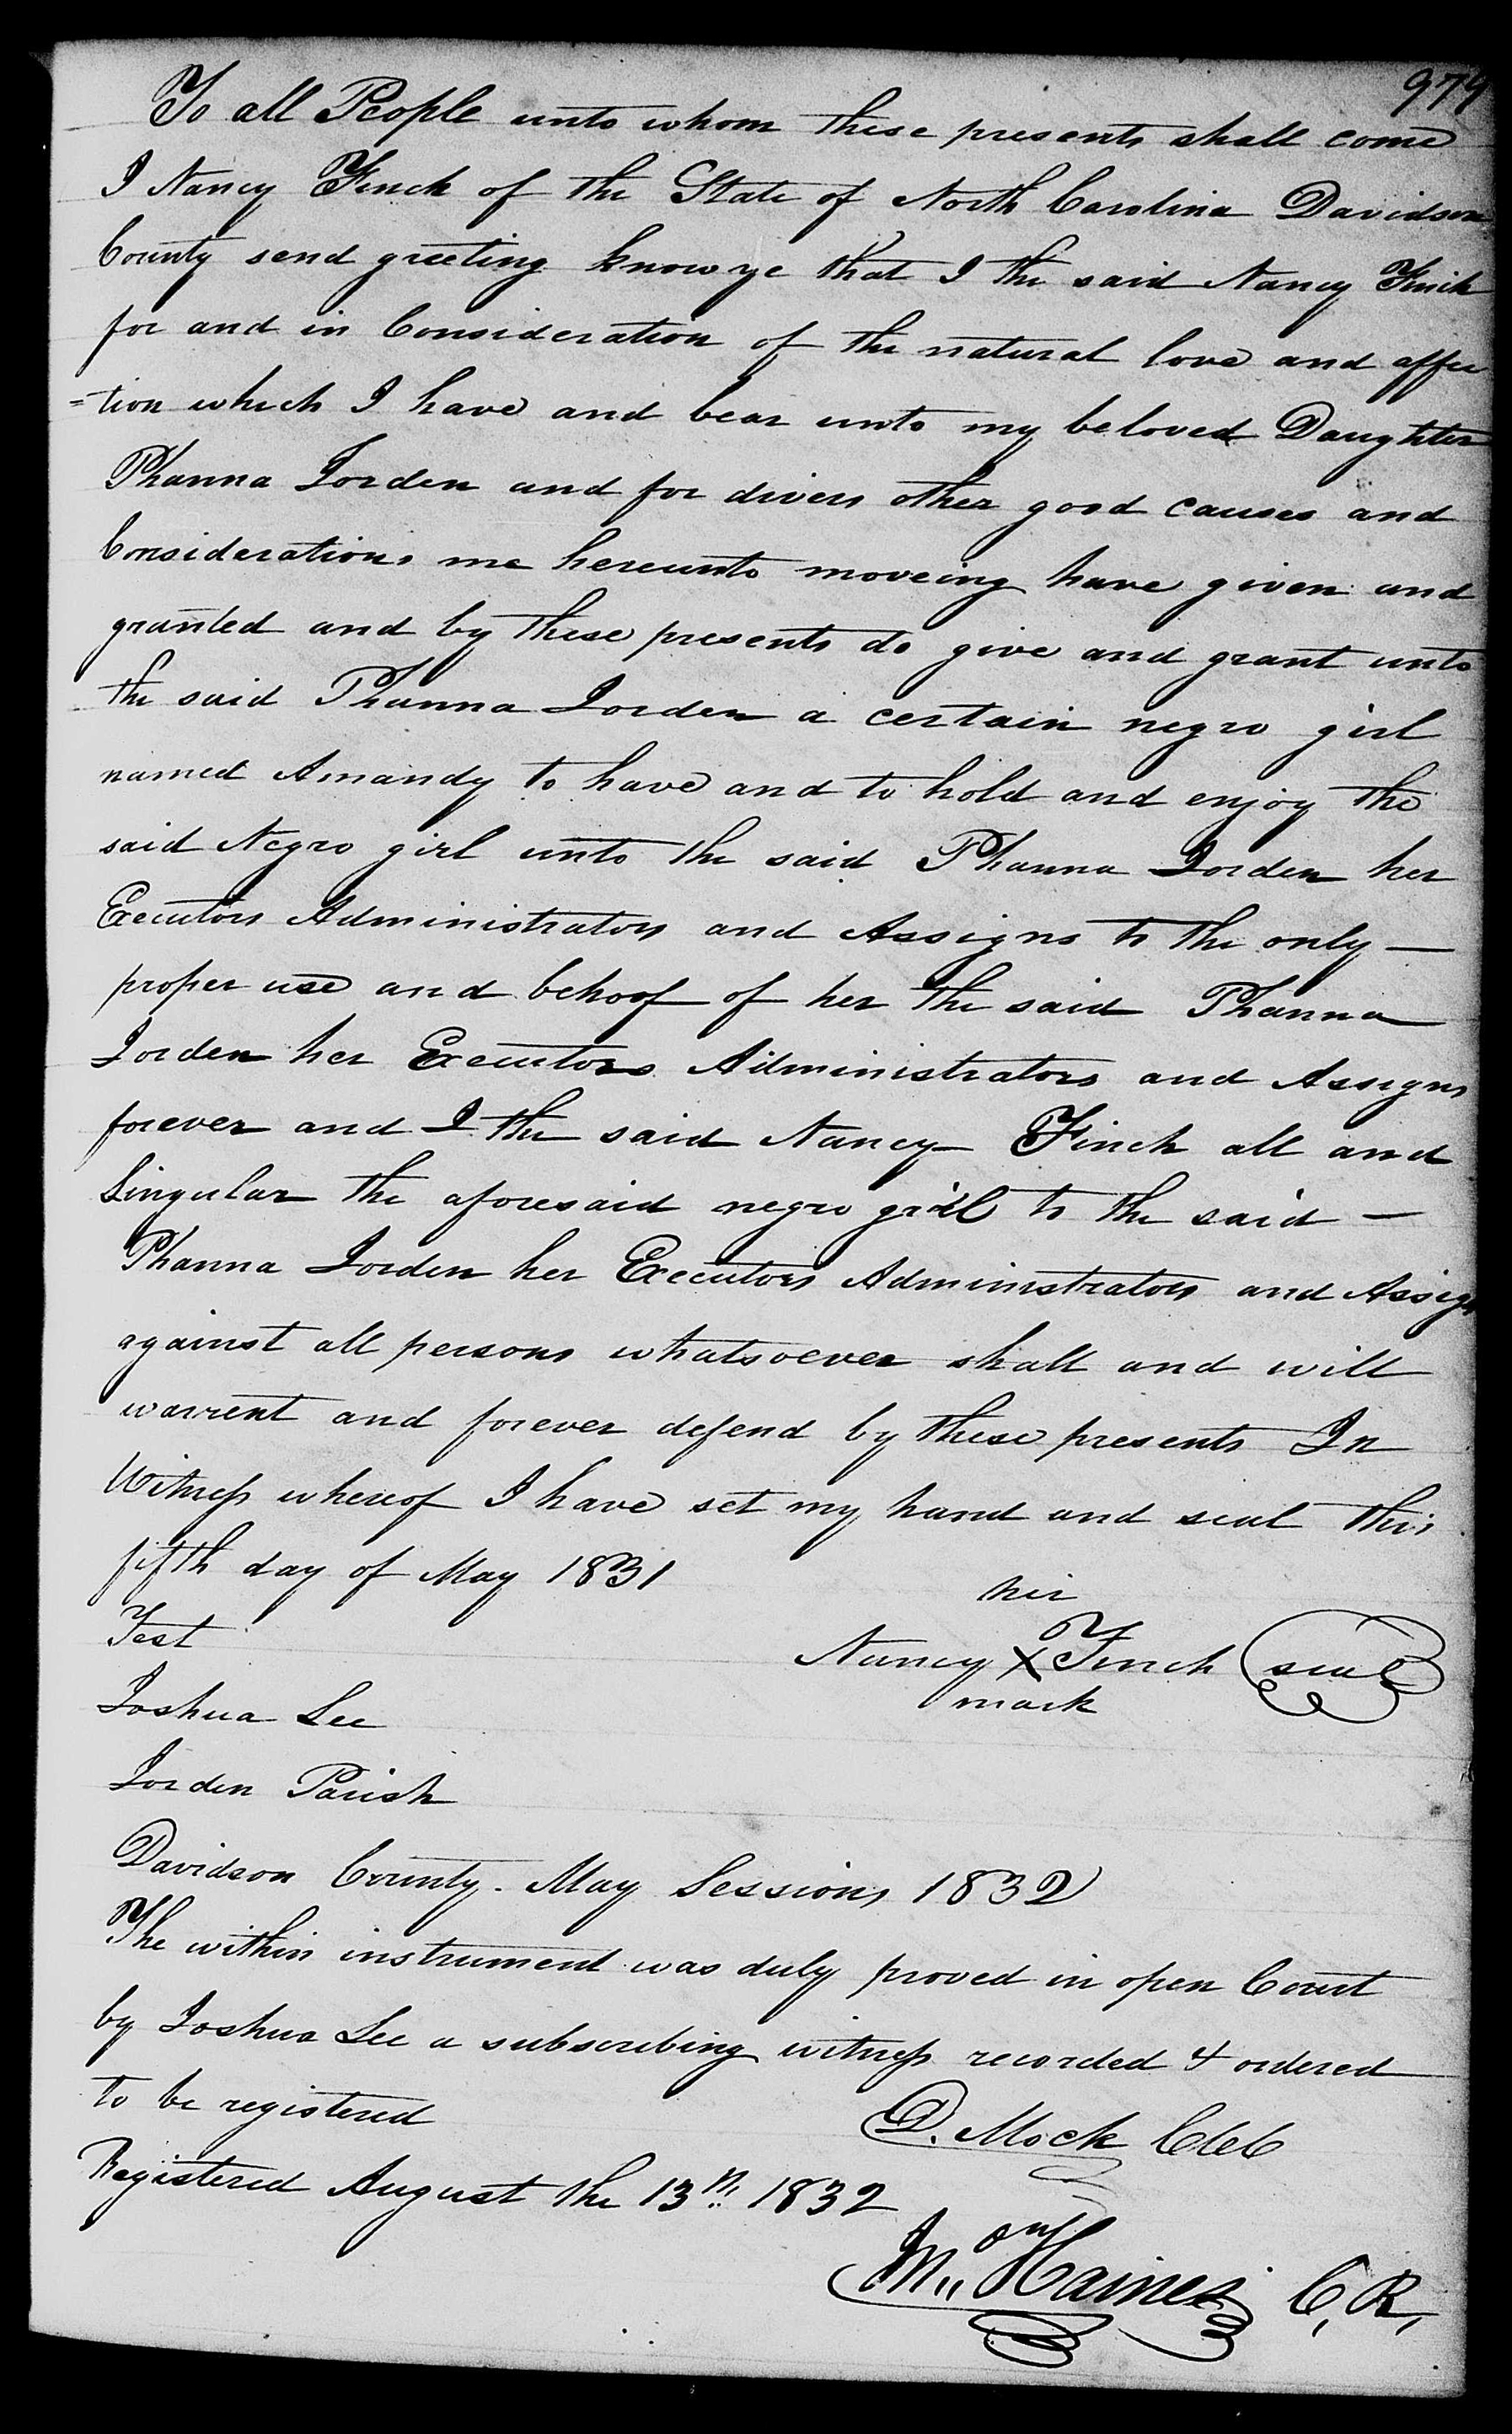 979
To all People unto whom these presents shall come
I Nancy Finch of the State of North Carolina Davidson
County send greeting know ye that I the said Nancy Finch
for and in Consideration of the natural love and affec
=tion which I have and bear unto my beloved Daughter
Phanna Jorden and for divers other good causes and
Considerations me hereunto moveing have given and
granted and by these presents do give and grant unto
the said Phanna Jorden a certain negro girl
named Amandy to have and to hold and enjoy the
said Negro girl unto the said Phanna Jorden her
Executors Administrators and Assigns to the only —
proper use and behoof of her the said Phanna
Jorden her Executors Administrators and Assigns
forever and I the said Nancy Finch all and
Singular the aforesaid negro girl to the said —
Phanna Jorden her Executors Administrators and Assigns
against all persons whatsoever shall and will
warrent and forever defend by these presents In
Witness whereof I have set my hand and seal this
fifth day of May 1831
her
Test
Nancy X Finch seal
mark
Joshua Lee
Jorden Parish
Davidson County. May Sessions 1832
The within instrument was duly proved in open Court
by Joshua Lee a subscribing witness recorded & ordered
to be registered
D. Mock CCC
Registered August the 13th 1832
Haines C, R,